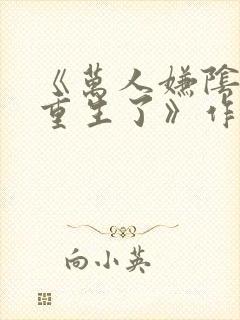 《萬人嫌陰
重生了》作
向小英